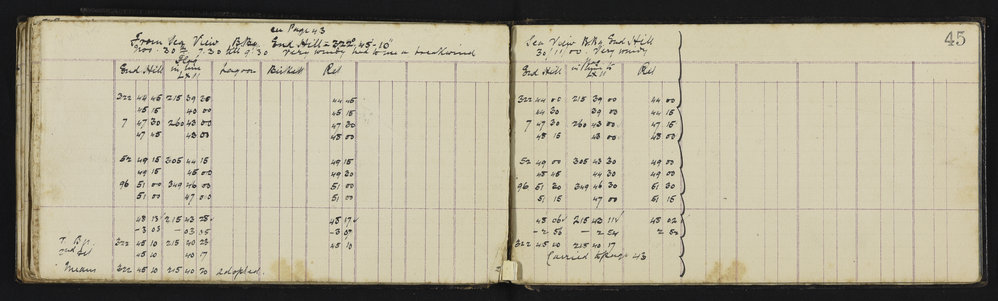 see Page 43
From Sea View B.Rg. End Hill = 322° 45' 10"
Nov. 30th 7.30 till 9.30 Very windy had to use a breakwind
End Hill in line Lagoon Ret
322 44 45 215 39 30 44 45
45 15 40 00 45 15
7 47 30 260 43 00 47 30
47 45 43 00 48 00
52 49 15 305 44 15 49 15
49 15 45 00 49 30
96 51 00 349 46 00 51 00
51 00 47 00 51 00
322 45 10 215 40 23 45 10
2nd Set 45 10 40 17
Means 322 45 10 215 40 20 adopted.
45
Sea View B.Rg End Hill
30/11/00. Very windy
End Hill Ret
322 44 00 215 39 00 44 00
44 30 39 00 44 15
7 47 30 260 43 00 47 15
48 15 43 00 48 00
52 49 00 305 43 30 49 00
48 45 44 30 49 00
96 51 30 349 46 30 51 30
51 15 47 00 51 15
48 06 215 43 11 48 02
- 2 56 - 2 54 2 52
322 45 10 215 40 17
Carried to page 43